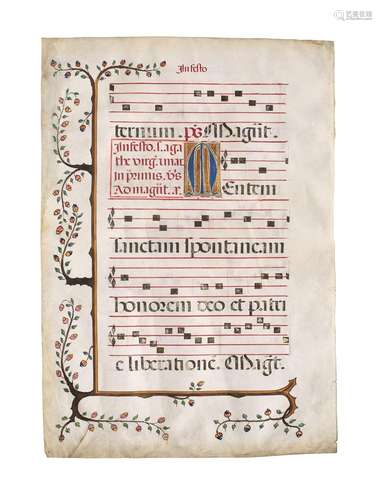 In festo
ternum. ps Magn̄t.
In festo. s. aga
the virg. i mat
in primis. v̄s
Ad magn̄t. a.
Mentem
sanctam spontaneam
honorem deo et patri
e liberationē. Magt.